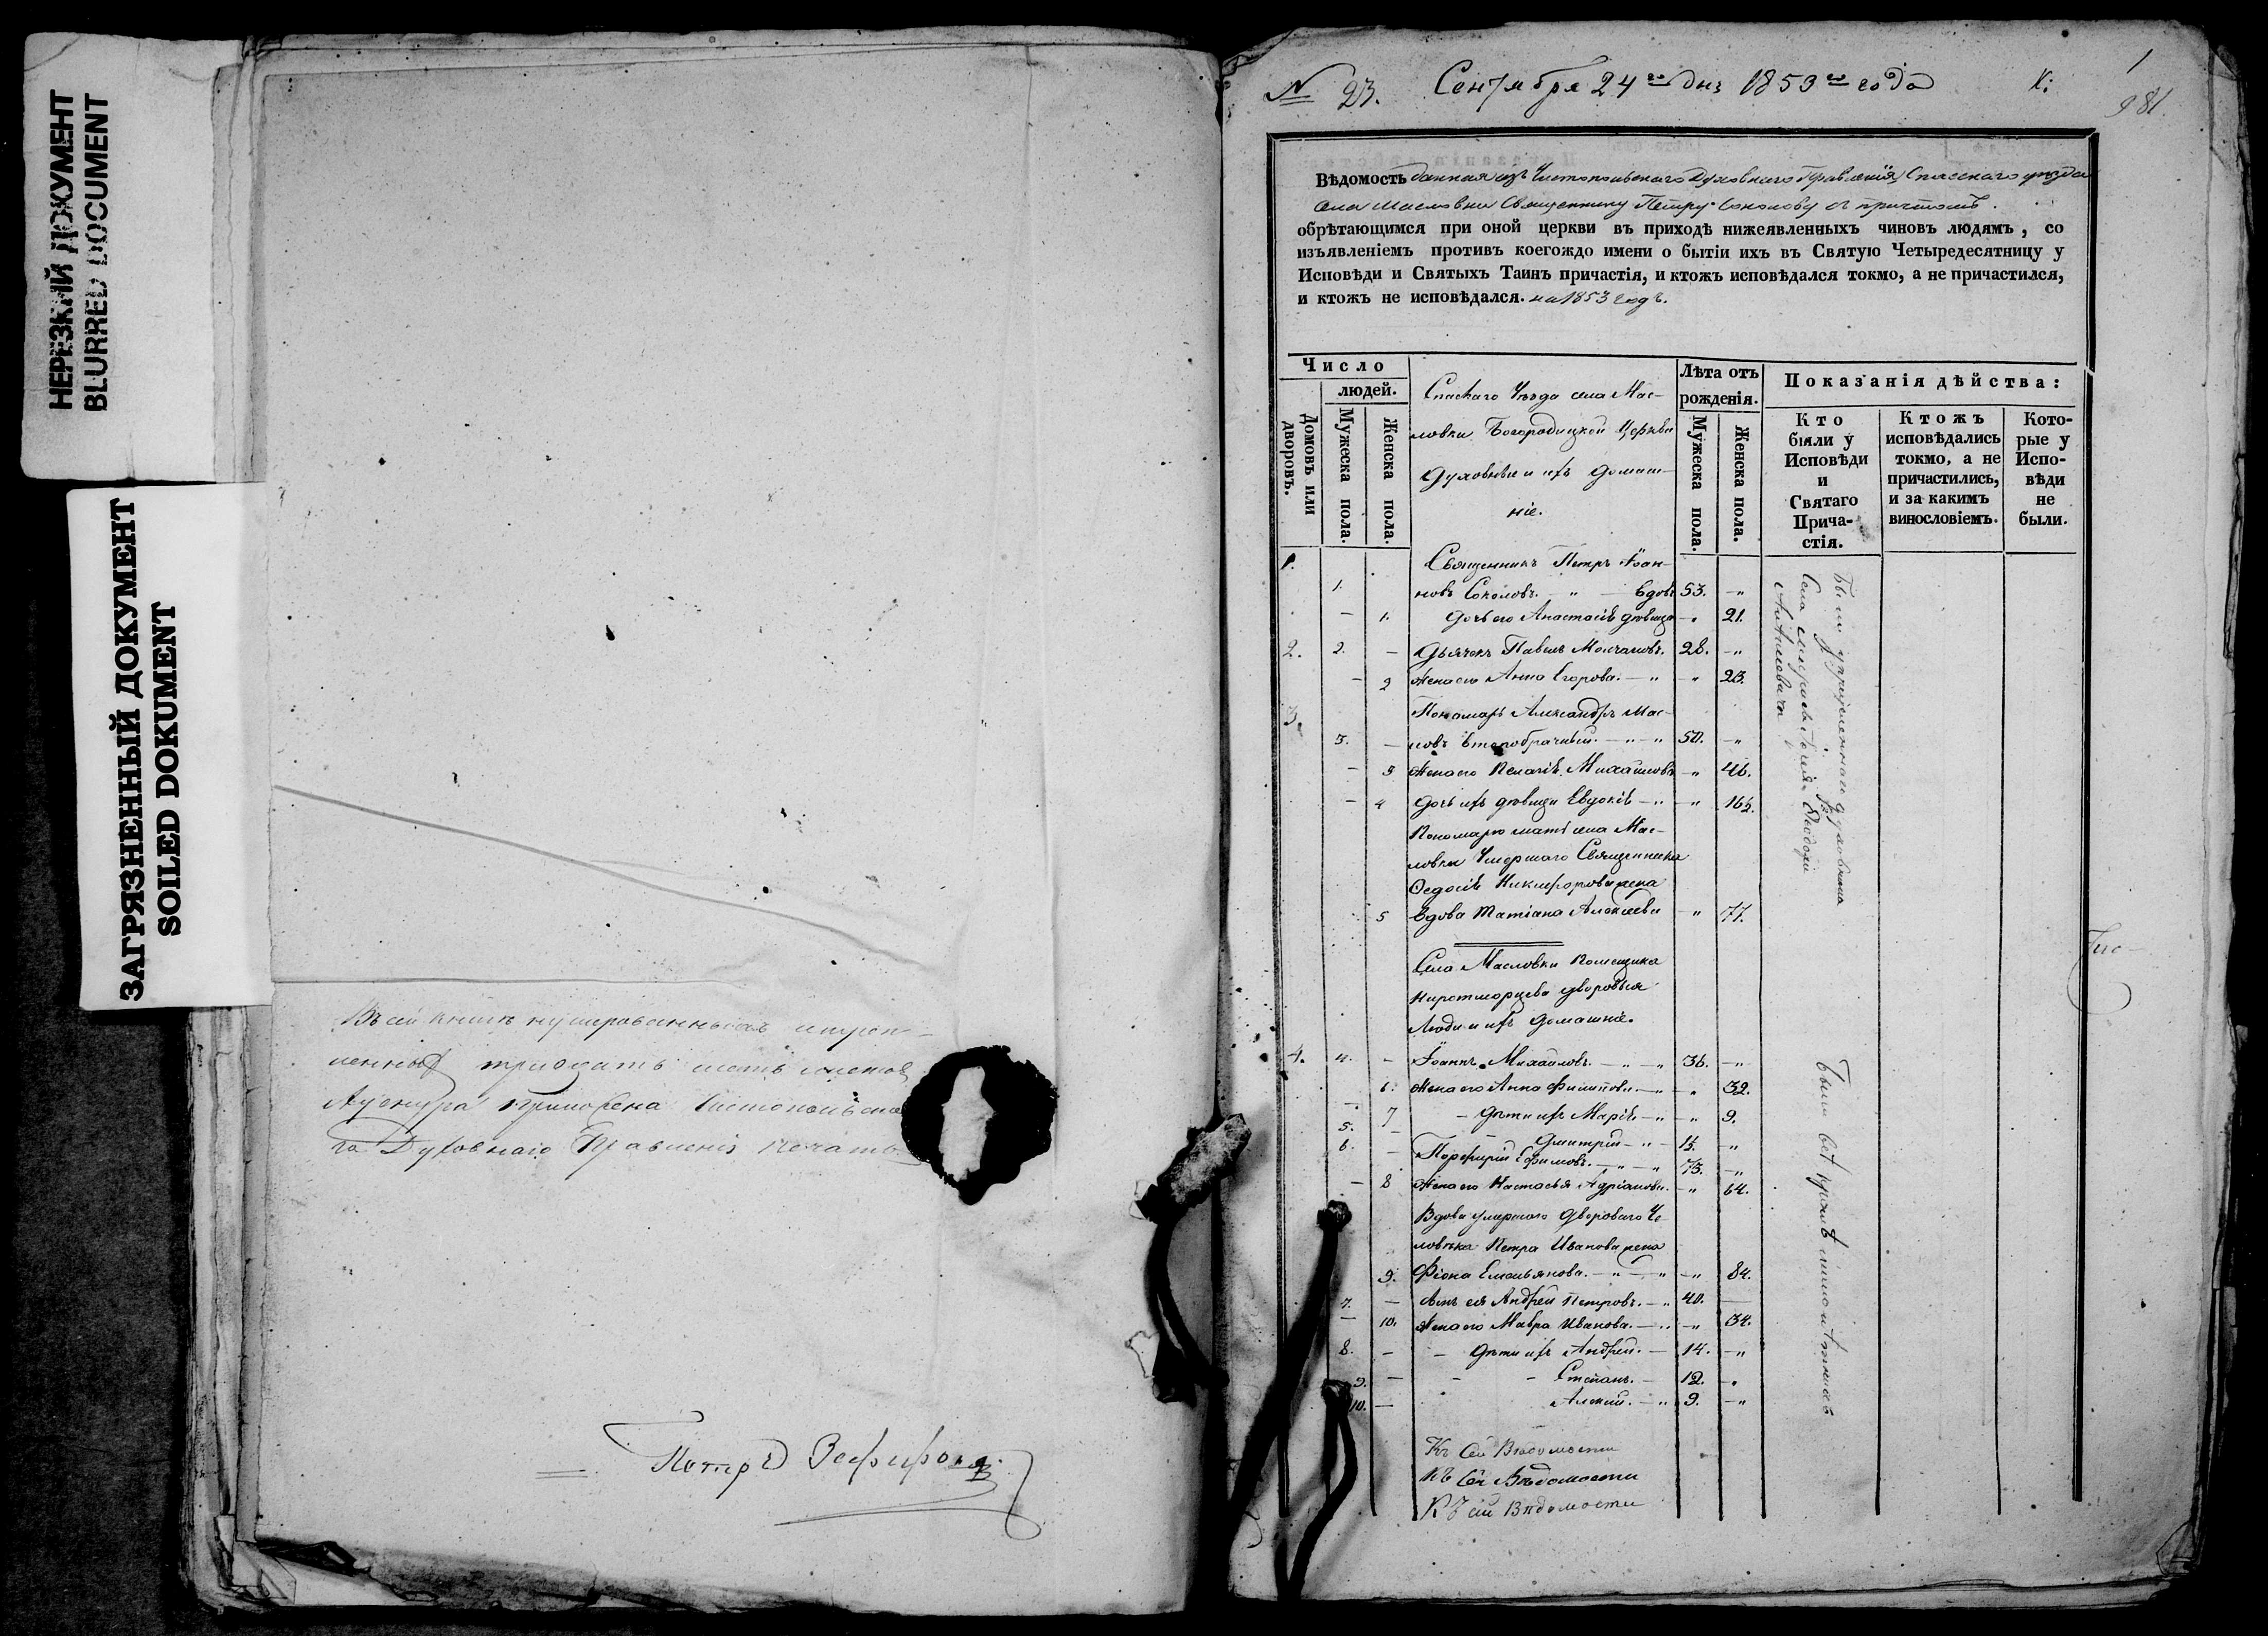 НЕРЕЗКИЙ ДОКУМЕНТ
BLURRED DOCUMENT
ЗАГРЯЗНЕННЫЙ ДОКУМЕНТ
SOILED DOKUMENT
Въ сей книгѣ нумерованныхъ
тридцать шесть листовъ
Чистопольска
го Духовнаго Правленія печать
Петръ
№ 23. Сентября 24 го дня 1853 го года
1
981.
Вѣдомость данная изъ Чистопольскаго Духовнаго Правленія, Спасскаго уѣзда
села Масловки Священнику Петру Соколову съ причтомъ.
обрѣтающимся при оной церкви въ приходѣ нижеявленныхъ чиновъ людямъ, со
изъявленіемъ противъ коегождо имени о бытіи ихъ въ Святую Четыредесятницу у
Исповѣди и Святыхъ Таинъ причастія, и ктожъ исповѣдался токмо, а не причастился,
и ктожъ не исповѣдался. на 1853 годъ.
Число
людей.
Домовъ или дворовъ.
Мужеска пола.
Женска пола.
Спаскаго Уѣзда села Мас-
ловки Богородицкой Церкви
Духовныи и ихъ домаш-
ніе.
Лѣта отъ рожденія.
Мужеска пола.
Женска пола.
Показанія дѣйства:
Кто были у Исповѣди и Святаго Прича-стія.
Ктожъ исповѣдались токмо, а не причастились, и за какимъ винословіемъ.
Кото-рые у Испо-вѣди не были.
1. Священникъ Петръ Іоан-
1. новъ Соколовъ. " вдовъ 53. "
— 1. Дочь его Анастасія дѣвица " 21.
2. 2. — Дьячекъ Павелъ Молчановъ. 28. "
— 2 Жена его Анна Егорова. " " 23.
3. Пономарь Александръ Мас-
3. — ловъ второбрачный. " " 50. "
— 3 Жена его Пелагія Михайлова " 46.
— 4 Дочь ихъ дѣвица Евдокія " "
Пономаря мать села Мас-
ловки Умершаго Священника
Федосія Никифорова жена
5 Вдова Татіана Алексеева " 77.
Села Масловки Помещика
дворовыя
Люди и ихъ домашніе.
4. 4. — Іоаннъ Михайловъ. " " 36. "
6. Жена его Анна Филипова. " 32.
— 7 Дѣти ихъ Марія " " 9.
5. — Дмитрій " "
6. — Порфирій Ефимовъ. " " 73. "
— 8 Жена его Настасья Адріанова. " 64.
Вдова умершаго Двороваго Че-
ловѣка Петра Иванова жена
9. Фіона Емельянова. " " " 84.
7. — Сынъ ея Андрей Петровъ. " 40. —
— 10. Жена его Мавра Иванова. " " 34.
8. — Дѣти ихъ Андрей. 14. "
9. — Степанъ. 12. "
10. — Алексій. " 9. "
Были у
Села
Были всѣ кромѣ
Къ Сей Вѣдомости
Къ Сей Вѣдомости
Къ сей Вѣдомости